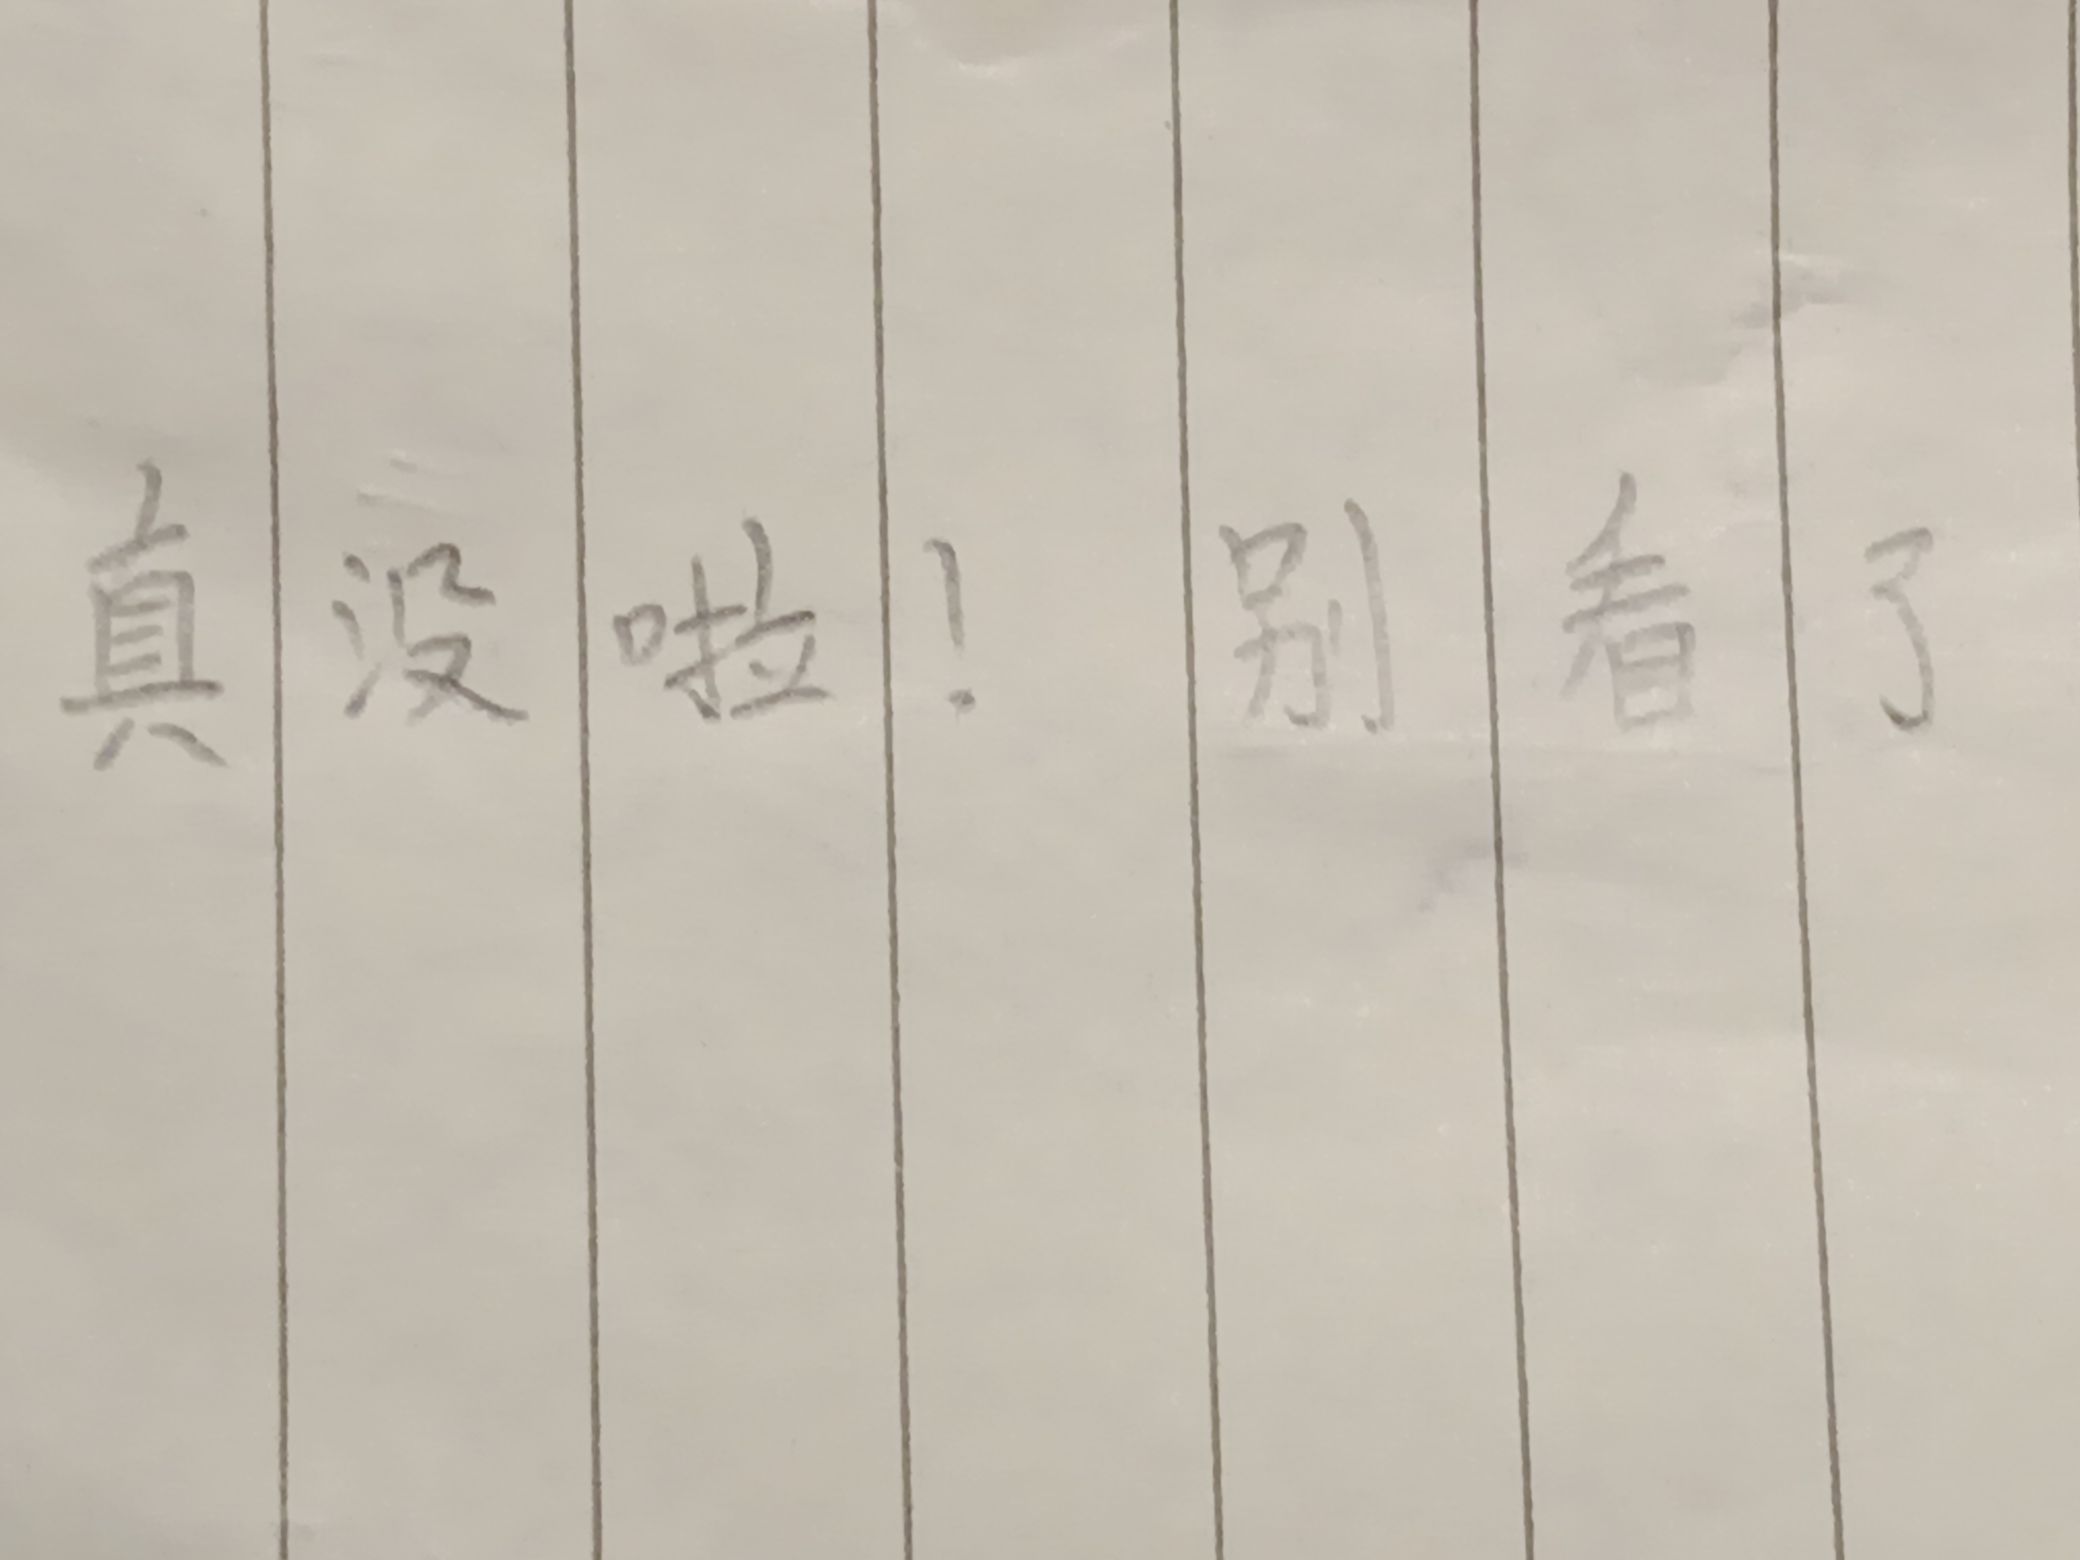 真没啦！别看了